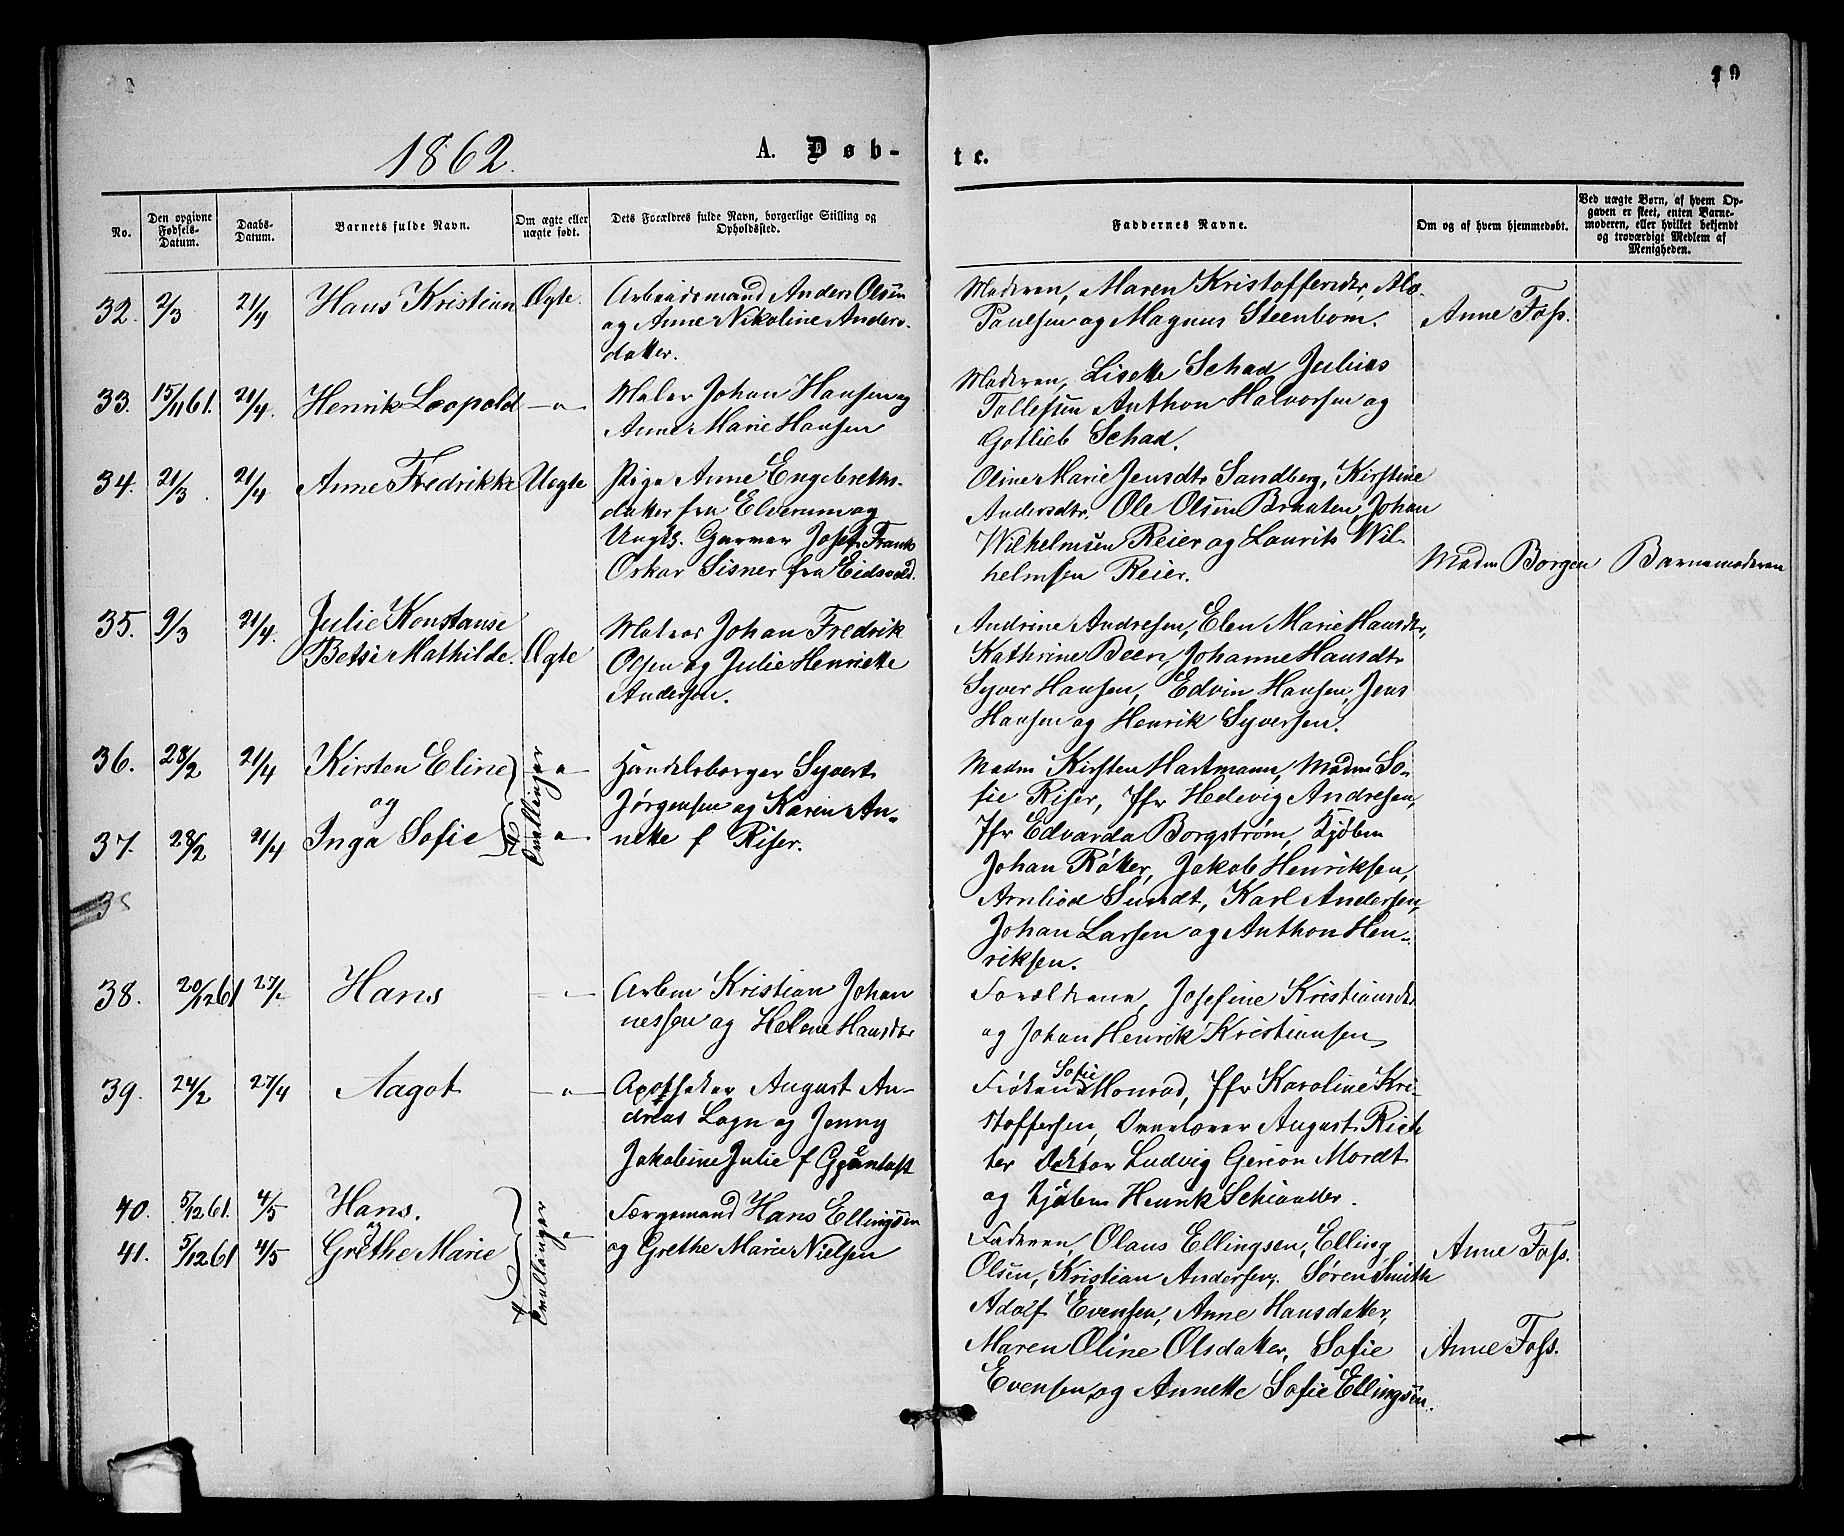 19
1862.
A. Døb-
te.
No.
Den opgivne Fødsels-Datum.
Daabs-Datum.
Barnets fulde Navn.
Om ægte eller uægte født.
Dets Forældres fulde Navn, borgerlige Stilling og Opholdssted.
Faddernes Navne.
Om og af hvem hjemmedøbt.
Ved uægte Børn, af hvem Opgaven er skeet, enten Barnemoderen, eller hvilket bekjendt og troværdigt Medlem af Menigheden.
32. 2/3 21/4 Hans Kristian Ægte. Arbeidsmand Anders Olsen
og Anne Nikoline Anders-
datter.
Moderen, Maren Kristoffersdtr,
Paulsen og Magnus Steenbom.
Anne Foss.
33. 15/11 61. 21/4. Henrik Leopold —"— Maler Johan Hansen og
Anne Marie Hansen
Moderen, Lisette Schad Julius
Tollefsen Anthon Halvorsen og
Gotlieb Schad.
34. 21/3 21/4 Anne Fredrikke Uægte Pige Anne Engebreths-
datter fra Elverum og
Ungk. Garver Josef Frants
Oskar Sisner fra Eidsvold.
Oline Marie Jensdtr Sandberg, Kirstine
Andersdtr. Ole Olsen Braaten, Johan
Wilhelmsen Reier og Laurits Wil-
helmsen Reier.
Madm Borgen
Barnemoderen
35. 9/3 21/4. Julie Konstanse
Betsi Mathilde. Ægte
Matros Johan Fredrik
Olsen og Julie Henriette
Andersen.
Andrine Andresen, Elen Marie Hansdtr,
Kathrine Been, Johanne Hansdtr
Syver Hansen, Edvin Hansen, Jens
Hansen og Henrik Syversen.
36. 28/2 21/4 Kirsten Eline —"—
og
37. 28/2 21/4 Inga Sofie —"—
Tvillinger
Handelsborger Syvert
Jørgensen og Karen An-
nette f Riser.
Madm Kirsten Hartmann, Madm So-
fie Riser, Jfr Hedevig Andresen,
Jfr Edvarda Borgstrøm, Kjøbm
Johan Røtter, Jakob Henriksen,
Arnliod Sundt, Karl Andersen,
Johan Larsen og Anthon Hen-
riksen.
38
38. 20/12 61 27/2 Hans —"— Arbm Kristian Johan
nessen og Helene Hansdtr
Forældrene, Josefine Kristiansdtr
og Johan Henrik Kristiansen
39. 24/2 27/4 Aagot —"— Apotheker August An-
dreas Logn og Jenny
Jakobine Julie f
Frøken Sofie Monrad, Jfr Karoline Kri-
stoffersen, August Rich
ter Doktor Ludvig Mordt
og Kjøbm Henrik Schiander.
40. 5/12 61. 4/5 Hans.
og
41. 5/12 61 4/5 Grethe Marie —"—
Tvillinger
Færgemand Hans Ellingsen
og Grethe Marie Nielsen
Faderen, Olaus Ellingsen, Elling
Olsen, Kristian Andersen, Søren Smith
Adolf Evensen, Anne Hansdatter,
Maren Oline Olsdatter, Sofie
Evensen og Annette Sofie Ellingsen.
Anne Foss.
Anne Foss.